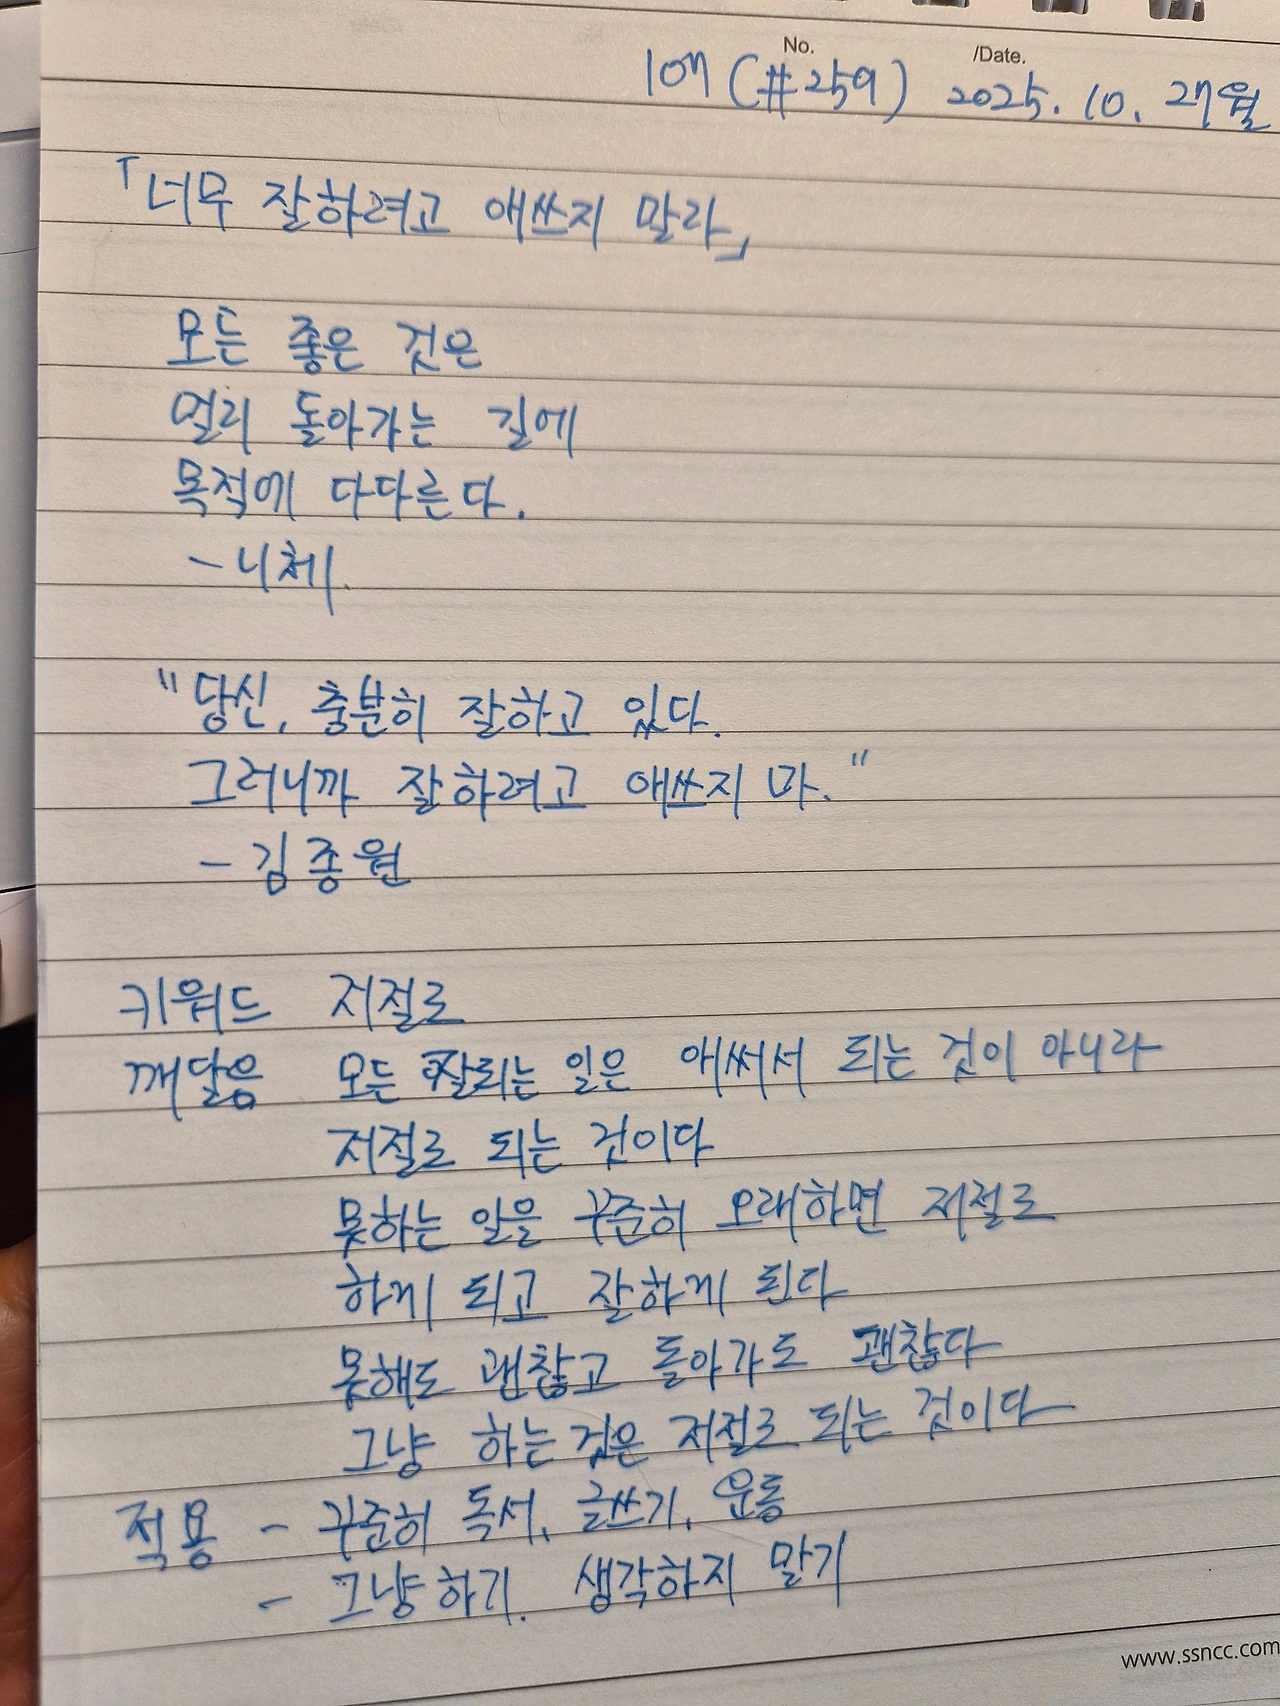 No.
/Date.
107 (#259) 2025. 10. 27 월
「너무 잘하려고 애쓰지 말라」
모든 좋은 것은
멀리 돌아가는 길에
목적에 다다른다.
- 니체
"당신, 충분히 잘하고 있다.
그러니까 잘하려고 애쓰지 마."
- 김종원
키워드 저절로
깨달음 모든 잘되는 일은 애써서 되는 것이 아니라
저절로 되는 것이다
못하는 일을 꾸준히 오래하면 저절로
하게 되고 잘하게 된다
못해도 괜찮고 돌아가도 괜찮다
그냥 하는 것은 저절로 되는 것이다
적용 - 꾸준히 독서, 글쓰기, 운동
- 그냥 하기. 생각하지 말기
www.ssncc.com